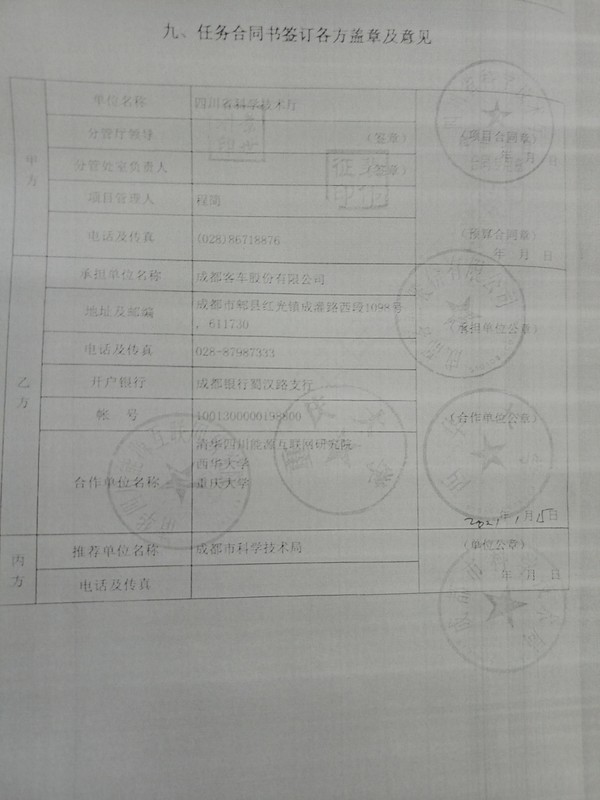 九、任务合同书签订各方盖章及意见
甲方
单位名称 四川省科学技术厅
分管厅领导 (签章)
(项目合同章)
年 月 日
分管处室负责人 (签章)
项目管理人 程简
电话及传真 (028)86718876
(预算合同章)
年 月 日
乙方
承担单位名称 成都客车股份有限公司
地址及邮编 成都市郫县红光镇成灌路西段1098号
，611730
(承担单位公章)
电话及传真 028-87987333
开户银行 成都银行蜀汉路支行
帐 号 1001300000198800
(合作单位公章)
合作单位名称
清华四川能源互联网研究院
西华大学
重庆大学
年 月 日
丙方
推荐单位名称 成都市科学技术局
(单位公章)
电话及传真
年 月 日